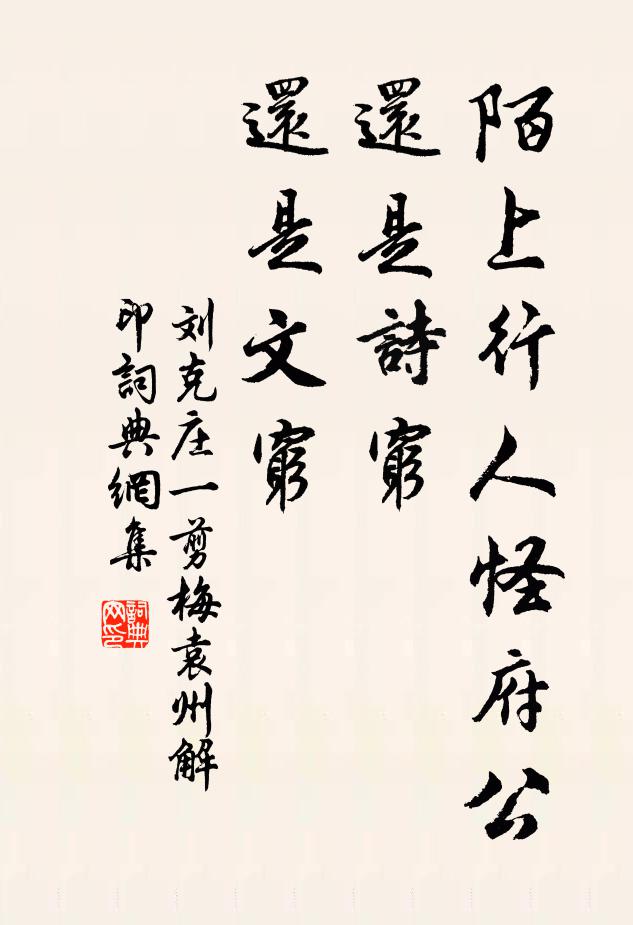 陌上行人怪府公
還是詩窮
還是文窮
刘克庄一剪梅袁州解
印詞典網集
詞典
网印